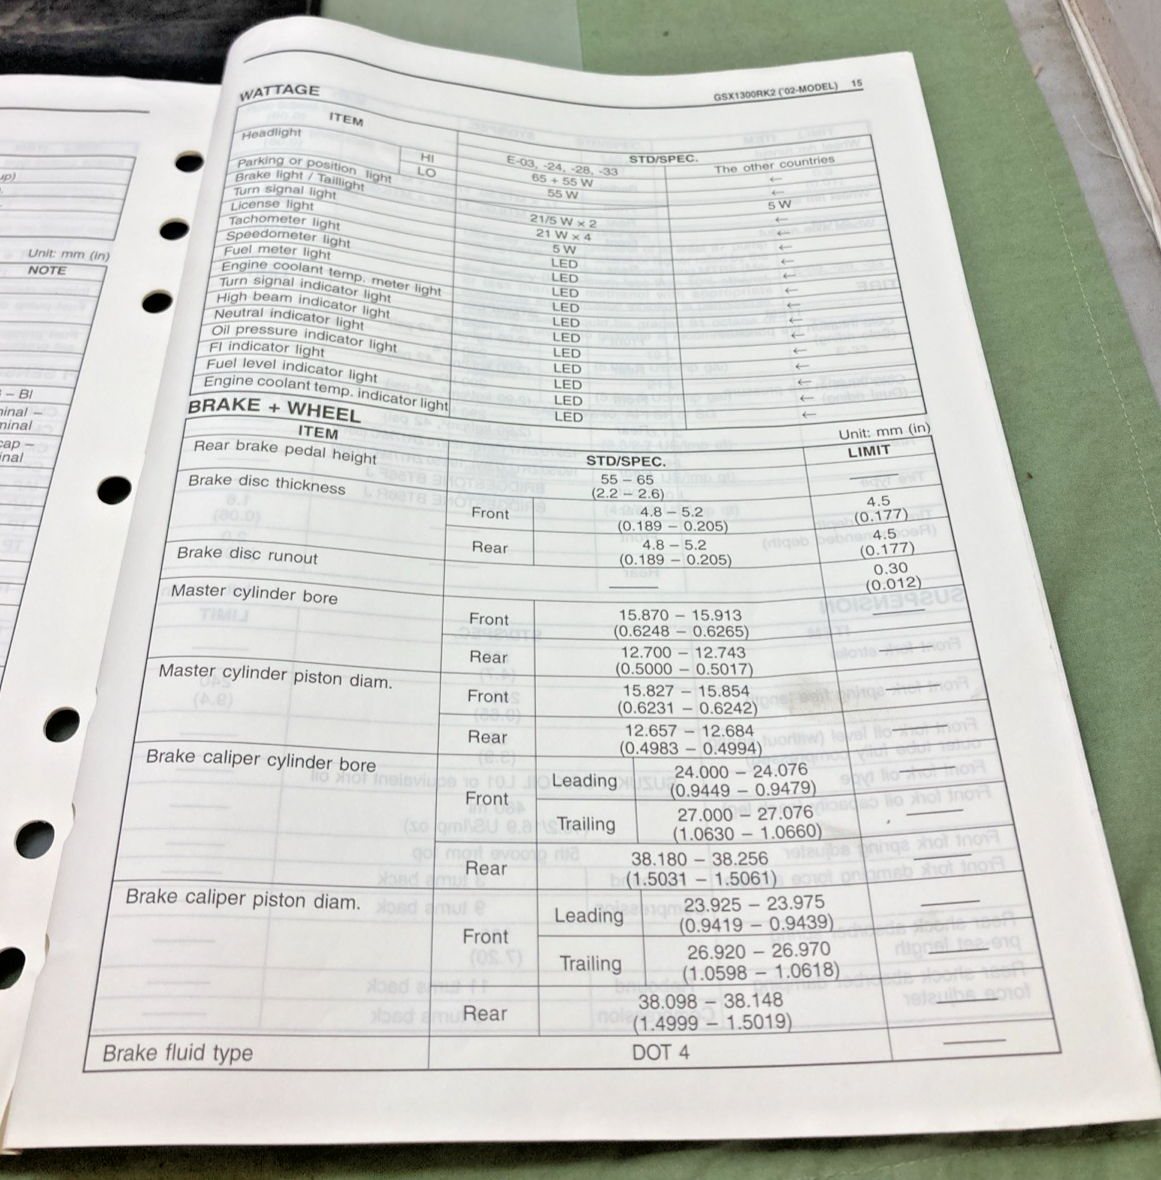 up)
Unit: mm (in)
NOTE
– Bl
minal –
minal
cap –
inal
GSX1300RK2 ('02-MODEL) 15
WATTAGE
ITEM STD/SPEC.
E-03, -24, -28, -33 The other countries
Headlight HI 65 + 55 W ←
LO 55 W ←
Parking or position light 5 W
Brake light / Taillight 21/5 W × 2 ←
Turn signal light 21 W × 4 ←
License light 5 W ←
Tachometer light LED ←
Speedometer light LED ←
Fuel meter light LED ←
Engine coolant temp. meter light LED ←
Turn signal indicator light LED ←
High beam indicator light LED ←
Neutral indicator light LED ←
Oil pressure indicator light LED ←
FI indicator light LED ←
Fuel level indicator light LED ←
Engine coolant temp. indicator light LED ←
BRAKE + WHEEL
Unit: mm (in)
ITEM STD/SPEC. LIMIT
Rear brake pedal height 55 – 65
(2.2 – 2.6)
Brake disc thickness Front 4.8 – 5.2 4.5
(0.189 – 0.205) (0.177)
Rear 4.8 – 5.2 4.5
(0.189 – 0.205) (0.177)
Brake disc runout 0.30
(0.012)
Master cylinder bore Front 15.870 – 15.913
(0.6248 – 0.6265)
Rear 12.700 – 12.743
(0.5000 – 0.5017)
Master cylinder piston diam. Front 15.827 – 15.854
(0.6231 – 0.6242)
Rear 12.657 – 12.684
(0.4983 – 0.4994)
Brake caliper cylinder bore Front Leading 24.000 – 24.076
(0.9449 – 0.9479)
Trailing 27.000 – 27.076
(1.0630 – 1.0660)
Rear 38.180 – 38.256
(1.5031 – 1.5061)
Brake caliper piston diam. Front Leading 23.925 – 23.975
(0.9419 – 0.9439)
Trailing 26.920 – 26.970
(1.0598 – 1.0618)
Rear 38.098 – 38.148
(1.4999 – 1.5019)
Brake fluid type DOT 4